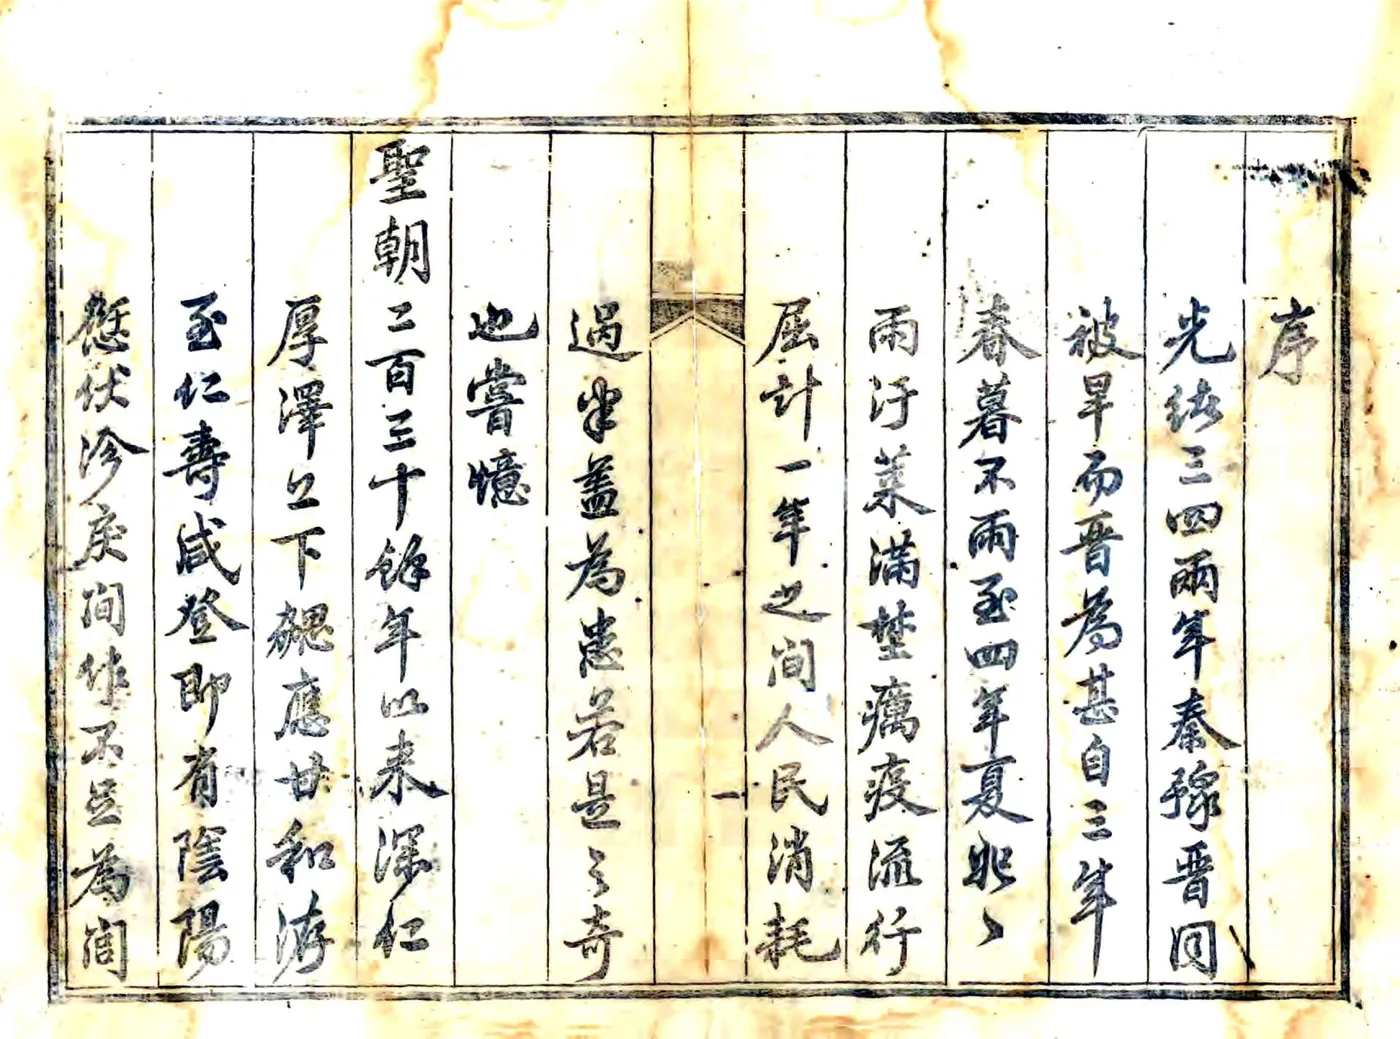 序
光緒三四兩年秦豫晋同
被旱而晋為甚自三年
春暮不雨至四年夏始〻
雨汙萊滿埜癘疫流行
屈計一年之間人民消耗
一
過半蓋為患若是〻奇
也嘗憶
聖朝二百三十餘年以来深仁
厚澤上下
應廿和游
至仁壽咸登即有陰陽
愆伏沴戾間作不足為閭